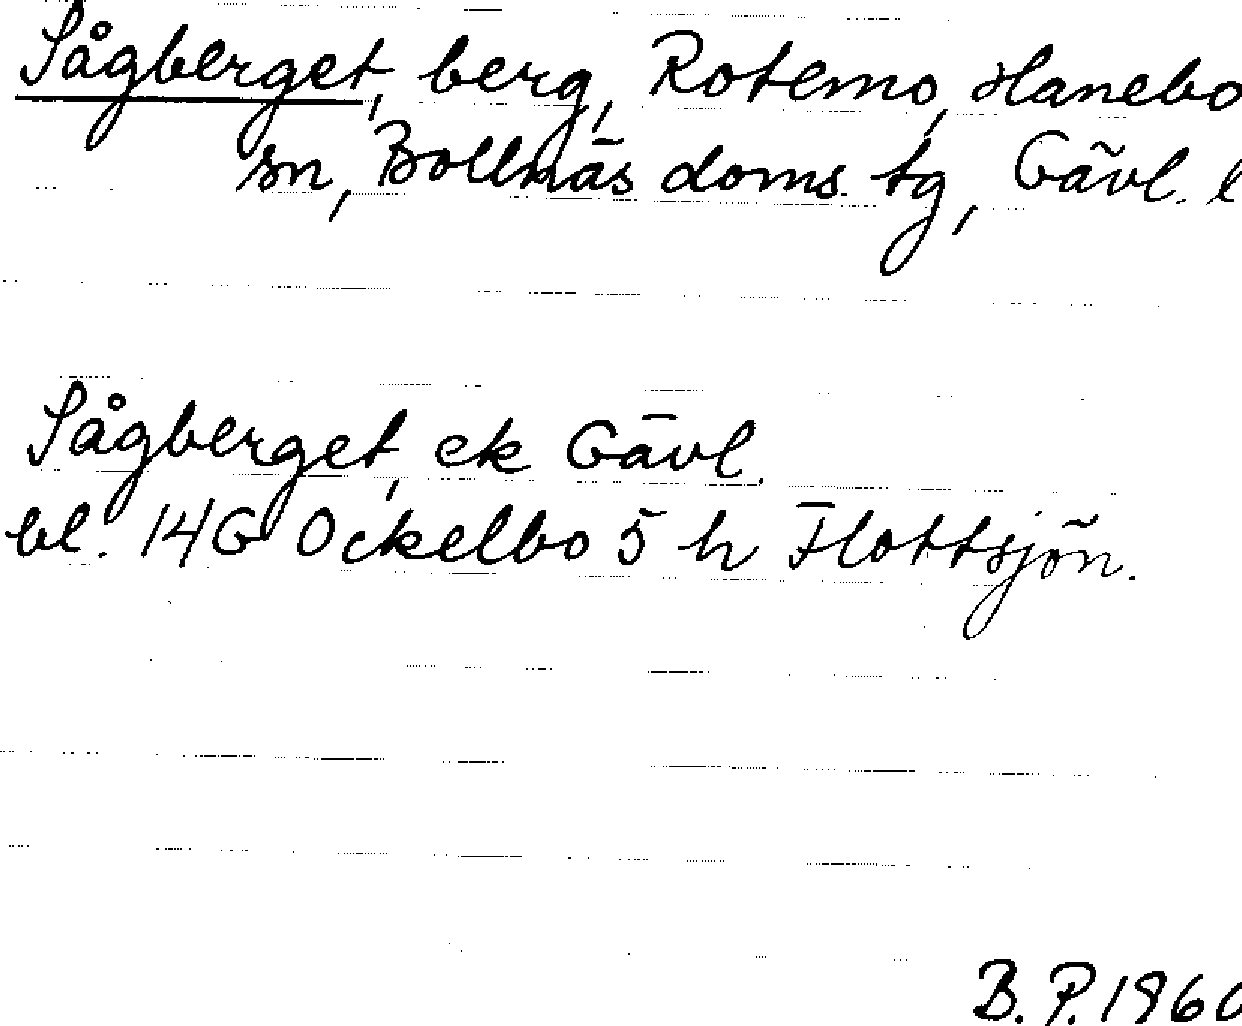 Sågberget, berg, Rotemo, Hanebo
sn, Bollnäs doms. tg, Gävl. l
Sågberget, ek Gävl.
bl. 14G Ockelbo 5 h Flottsjön.
B. P. 1960